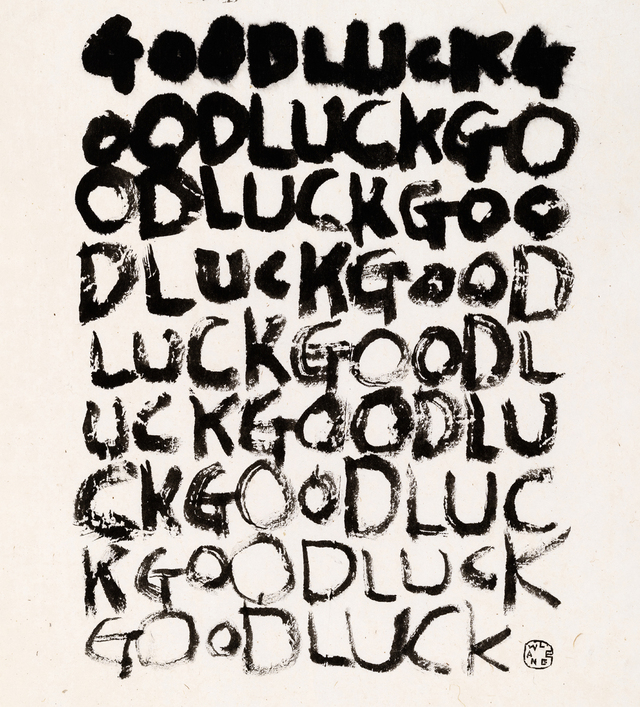 GOODLUCKG
OODLUCKGO
ODLUCKGOO
DLUCKGOOD
LUCKGOODL
UCKGOODLU
CKGOODLUC
KGOODLUCK
GOODLUCK